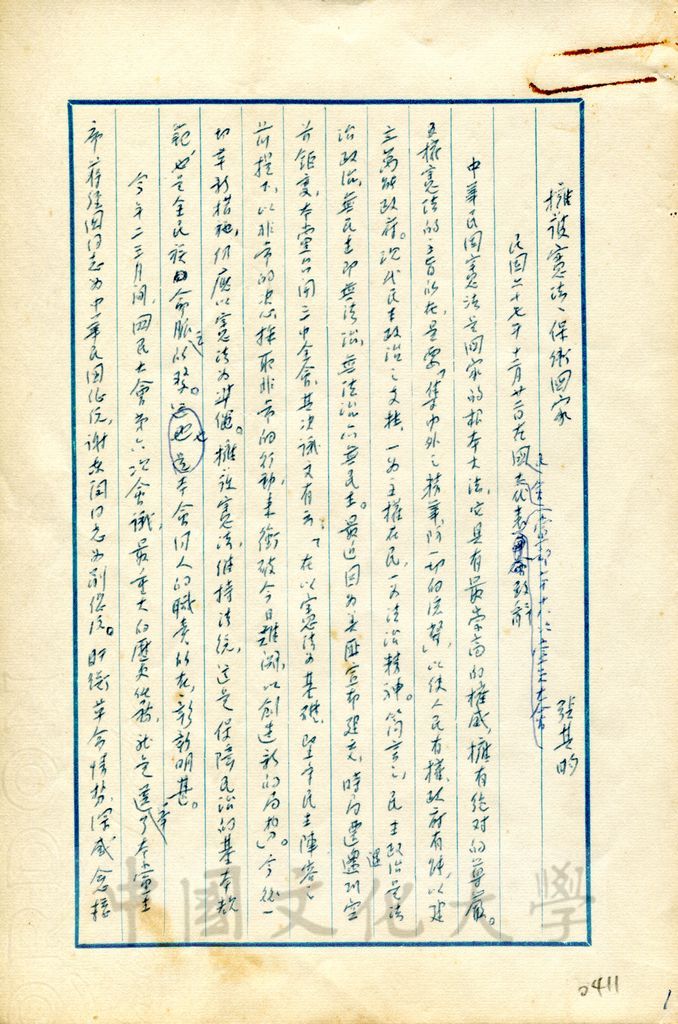 擁護憲法、保衛國家
民國六十七年十二月廿二日在國大代表
張其昀
中華民國憲法是國家的根本大法,它具有最崇高的權威,擁有絕對的尊嚴。
五權憲法的主旨所在,是要「集中外之精華,防一切的流弊」,以使人民有權,政府有能,以建
立萬能政府。現代民主政治之支柱,一為主權在民,一為法治精神。簡言之,民主政治是法
治政治,無民主即無法治,無法治亦無民主。最近因為美匪宣布建交,時局遭遇到空
前鉅變,本黨召開三中全會,其決議文有云:「在以憲法為基礎,堅守民主陣容之
前提下,以非常的決心,採取非常的行動,來衝破今日難關,以創造新的局勢」。今後一
切革新措施,仍應以憲法為準繩。擁護憲法,維持法統,這是保障民治的基本軌
範,也是全民族命脈之所繫。這也是本會同人的職責所在,彰彰明甚。
今年二三月間,國民大會第六次會議,最重大的歷史任務,就是選了本黨主
席蔣經國同志為中華民國總統,謝東閔同志為副總統。盱衡革命情勢,深感急務
中國文化大學
0411
1